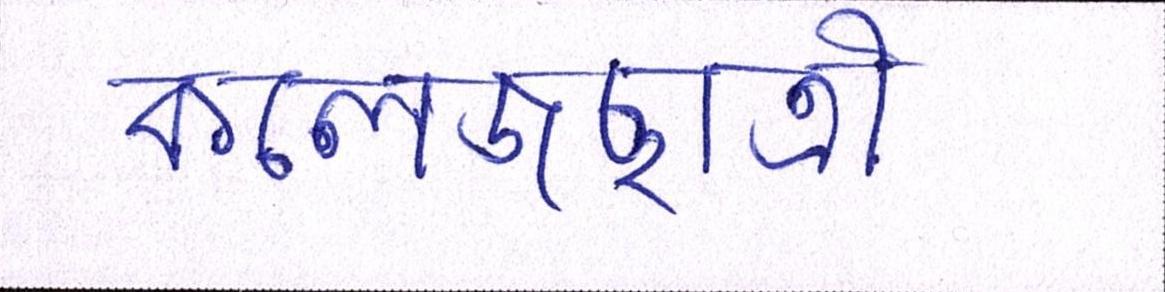 কলেজছাত্রী